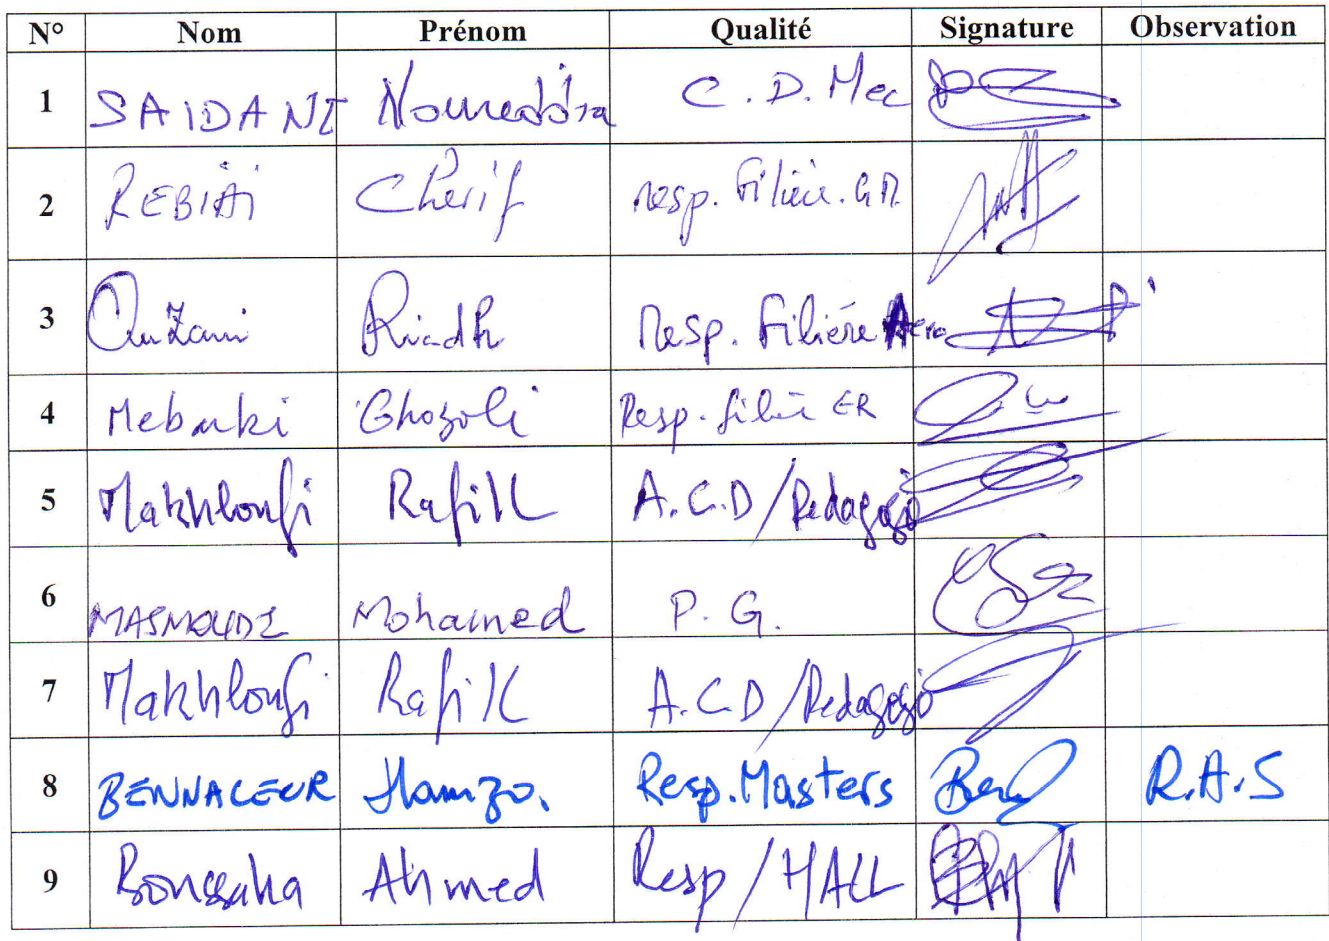 N° Nom Prénom Qualité Signature Observation
1 SAIDANI Noureddine C.D.Mec
2 REBIAI Cherif resp. Filière. GM
3 Ouzani Riadh Resp. Filiére Aero
4 Mebarki Ghozali Resp. filiè ER
5 Makhloufi Rafik A.C.D/Pedagogi
6 MASMOUDI Mohamed P.G.
7 Makhloufi Rafik A.C.D/Pedagogi
8 BENNACEUR Hamza. Resp.Masters Ben R.A.S
9 Boussaha Ahmed Resp/HALL